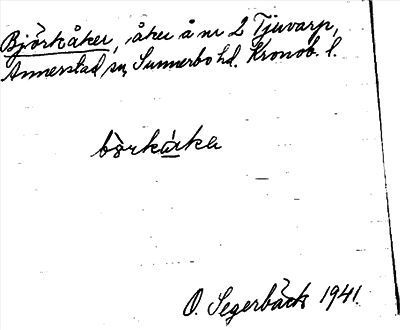 Björkåker, åker å nr 2 Tjuvarp,
Annerstad sn, Sunnerbo hd. Kronob. l.
börkårka
O. Segerbäck 1941.